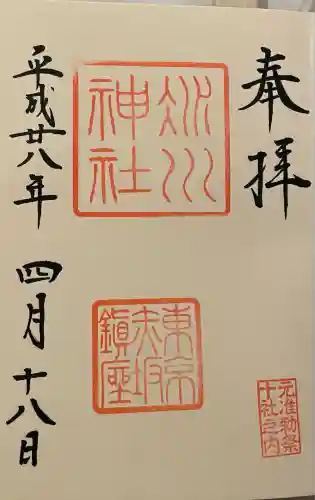 奉拝
氷川
神社
東京
赤坂
鎮座
元准勅祭
十社之内
平成廿八年
四月十八日